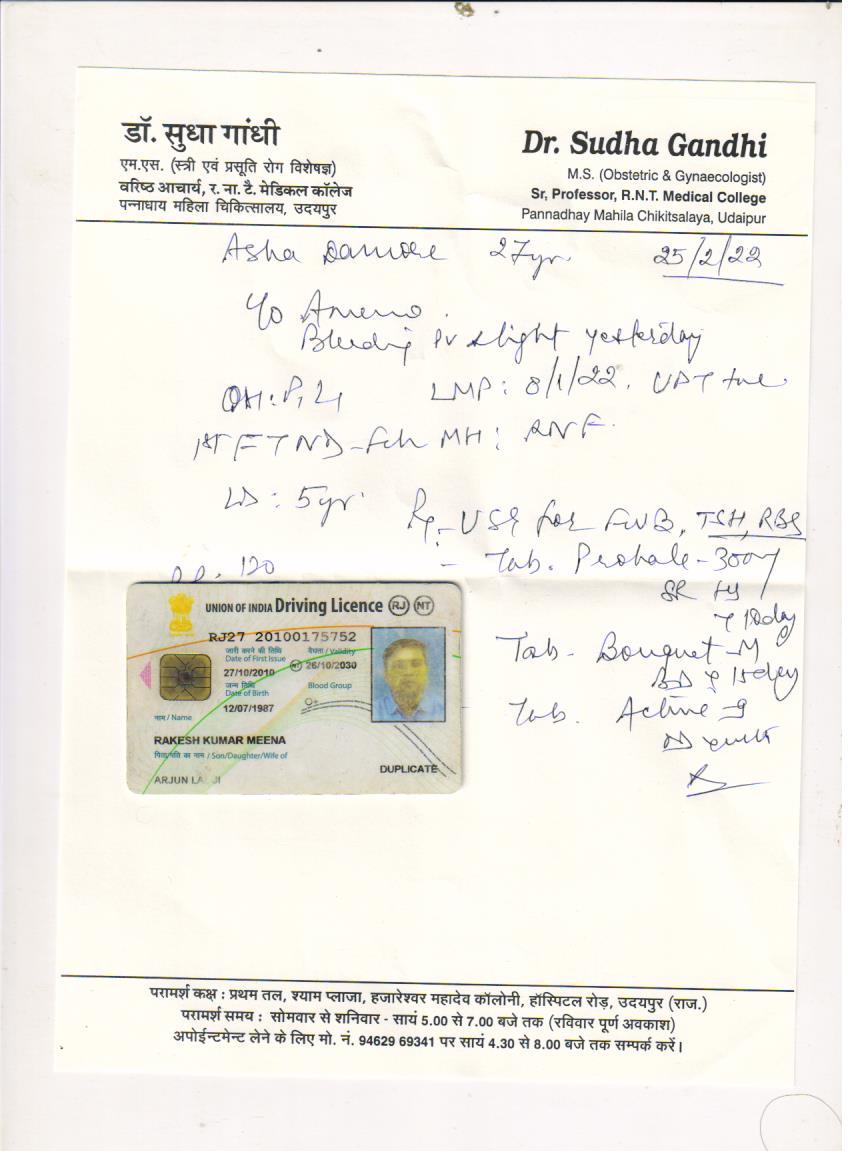 डॉ. सुधा गांधी
एम.एस. (स्त्री एवं प्रसूति रोग विशेषज्ञ)
वरिष्ठ आचार्य, र. ना. टै. मेडिकल कॉलेज
पन्नाधाय महिला चिकित्सालय, उदयपुर
Dr. Sudha Gandhi
M.S. (Obstetric & Gynaecologist)
Sr, Professor, R.N.T. Medical College
Pannadhay Mahila Chikitsalaya, Udaipur
Asha Damore 27yr 25/2/22
Bleeding PV slight yesterday
LMP: 8/1/22. UPT +ve
1st FTND - Fch MH: RNF
LD: 5yr.
USG for FWB, TSH, RBS
120
Tab.
SR
10day
Tab - Bouquet - M
BD 15day
Tab.
UNION OF INDIA Driving Licence RJ NT
RJ27 20100175752
जारी करने की तिथि
Date of First Issue
27/10/2010
वैधता / Validity
NT 26/10/2030
जन्म तिथि
Date of Birth
12/07/1987
Blood Group
नाम / Name
RAKESH KUMAR MEENA
पिता/पति का नाम / Son/Daughter/Wife of
ARJUN
DUPLICATE
परामर्श कक्ष : प्रथम तल, श्याम प्लाजा, हजारेश्वर महादेव कॉलोनी, हॉस्पिटल रोड़, उदयपुर (राज.)
परामर्श समय : सोमवार से शनिवार - सायं 5.00 से 7.00 बजे तक (रविवार पूर्ण अवकाश)
अपोईन्टमेन्ट लेने के लिए मो. नं. 94629 69341 पर सायं 4.30 से 8.00 बजे तक सम्पर्क करें।